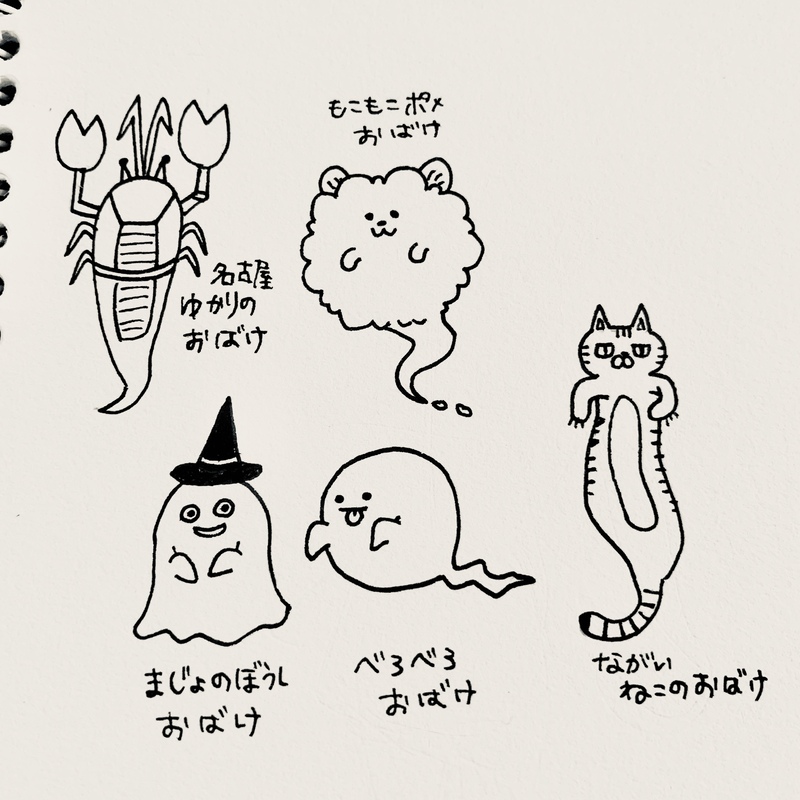 もこもこポメ
おばけ
名古屋
ゆかりの
おばけ
まじょのぼうし
おばけ
べろべろ
おばけ
ながい
ねこのおばけ